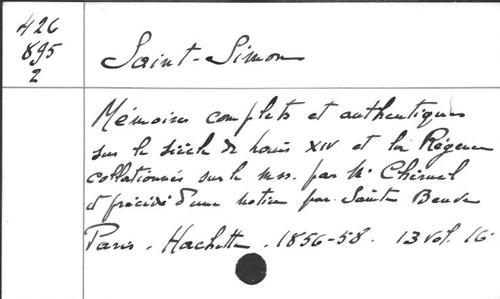 426
895
2
Saint-Simon
Mémoires complets et authentiques
sur le siècle de Louis XIV et la Régence
collationnés sur le ms. par Mr Chéruel
et précédé d'une notice par Sainte Beuve
Paris. Hachette. 1856-58. 13 vol. 16°